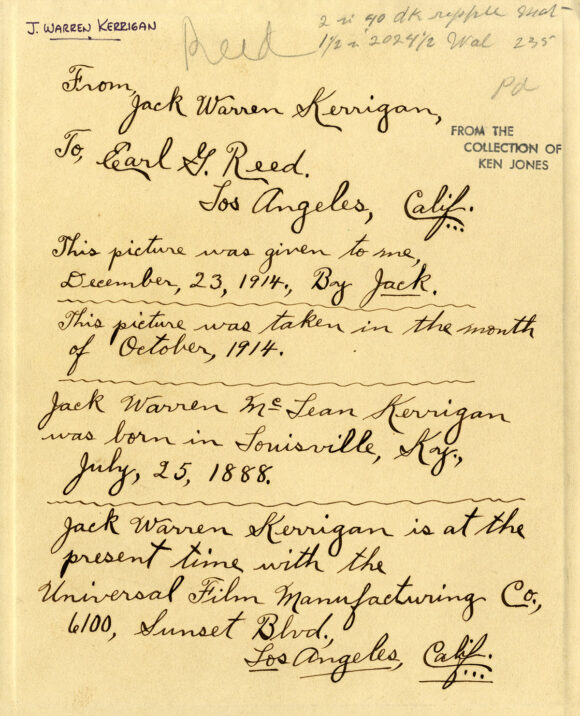 J. WARREN KERRIGAN
Reed
2 in 90 dk ripple Mat
1/2 in 2024 1/2 Wal 235
Pd
From,
Jack Warren Kerrigan,
FROM THE
COLLECTION OF
KEN JONES
To, Earl G. Reed.
Los Angeles, Calif.
This picture was given to me,
December, 23, 1914., By Jack.
This picture was taken in the month
of October, 1914.
Jack Warren Mc Lean Kerrigan
was born in Louisville, Ky.,
July, 25, 1888.
Jack Warren Kerrigan is at the
present time with the
Universal Film Manufacturing Co.,
6100, Sunset Blvd.,
Los Angeles, Calif.